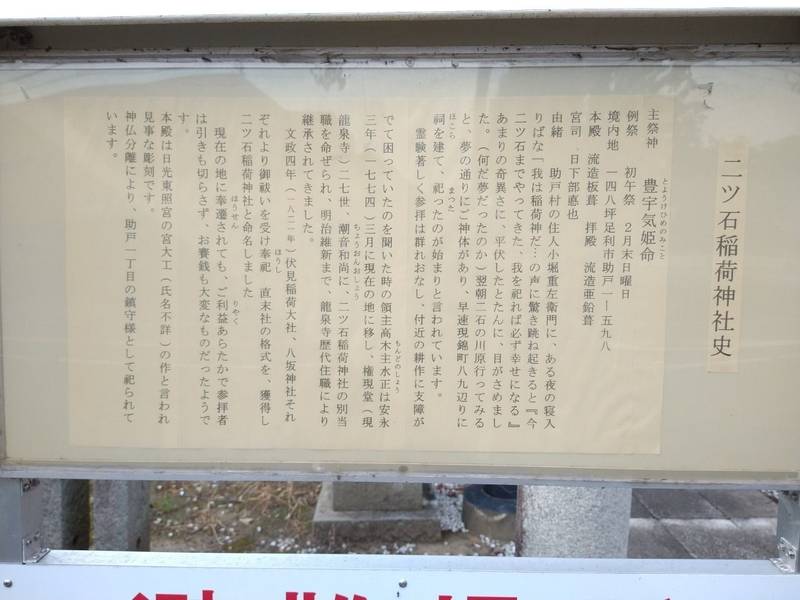 二ツ石稲荷神社史
とようけひめのみこと
主祭神　豊宇気姫命
例祭　初午祭　２月末日曜日
境内地　一四八坪足利市助戸一ー五九八
本殿　流造板葺　拝殿　流造亜鉛葺
宮司　日下部嘉也
由緒　助戸村の住人小堀重左衛門に、ある夜の寝入
りばな「我は稲荷神だ…の声に驚き跳ね起きると『今
二ツ石までやってきた、我を祀れば必ず幸せになる』
あまりの奇異さに、平伏したとたんに、目がさめまし
た。（何だ夢だったのか）翌朝二石の川原行ってみる
と、夢の通りにご神体があり、早速現錦町八九辺りに
ほこら　まつった
祠を建て、祀ったのが始まりと言われています。
霊験著しく参拝は群れおなし、付近の耕作に支障が
でて困っていたのを聞いた時の領主高木主水正は安永
もんどのしょう
三年（一七七四）三月に現在の地に移し、権現堂（現
龍泉寺）二七世、潮音和尚に、二ツ石稲荷神社の別当
ちょうおんおしょう
職を命ぜられ、明治維新まで、龍泉寺歴代住職により
継承されてきました。
文政四年（一八二一年）伏見稲荷大社、八坂神社それ
ぞれより御祓いを受け奉祀　直末社の格式を、獲得し
ほうし
二ツ石稲荷神社と命名しました
現在の地に奉遷されても、ご利益あらたかで参拝者
ほうせん　りやく
は引きも切らさず、お賽銭も大変なものだったようで
す。
本殿は日光東照宮の宮大工（氏名不詳）の作と言われ
見事な彫刻です。
神仏分離により、助戸一丁目の鎮守様として祀られて
います。